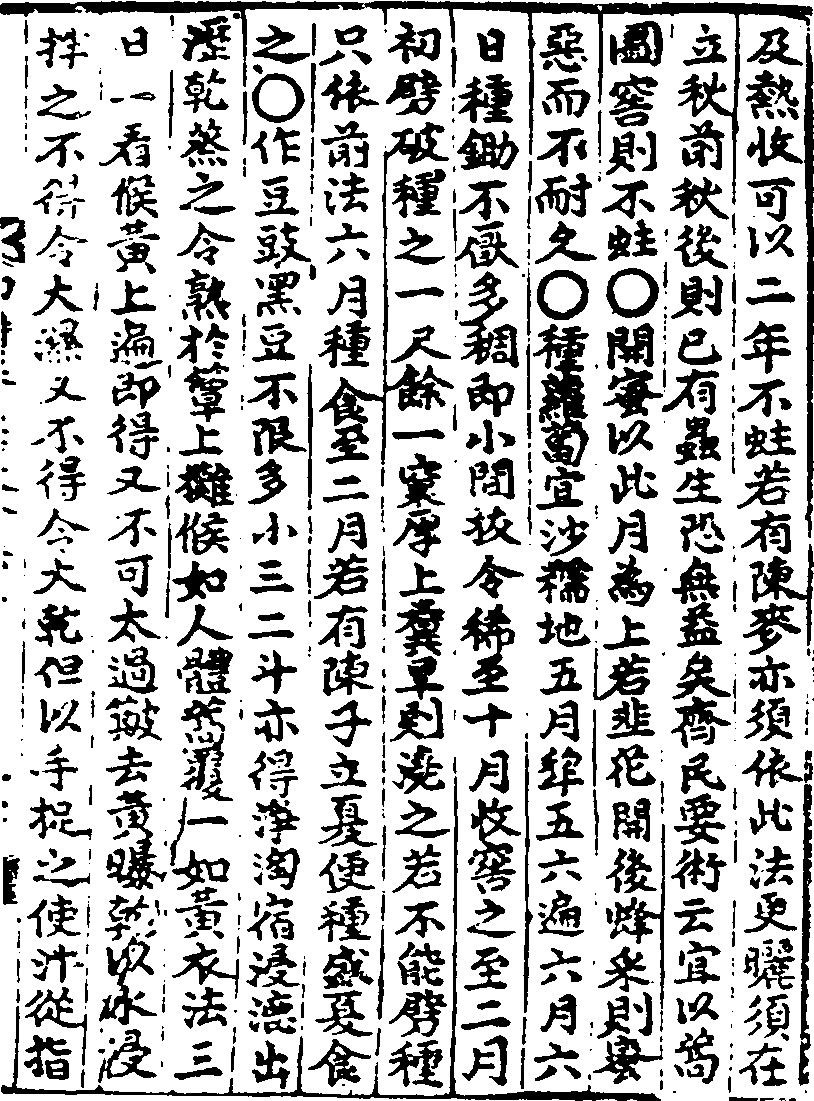 及熱收可以二年不蛀若有陳麥亦須依此法更曬須在
立秋前秋後則已有蟲生恐無益矣齊民要術云宜以蒿
圌窖則不蛀○開蜜以此月為上若韭花開後蜂采則蜜
惡而不耐久○種蘿蔔宜沙糯地五月犂五六遍六月六
日種鋤不厭多稠即小間拔令稀至十月收窖之至二月
初劈破種之一尺餘一窠厚上糞旱則澆之若不能劈種
只依前法六月種食至二月若有陳子立憂便種盛夏食
之○作豆豉黑豆不限多小三二斗亦得淨淘宿浸漉出
瀝乾蒸之令熟於簟上攤候如人體蒿覆一如黃衣法三
日一看候黃上遍即得又不可太過簸去黃曝乾以水浸
拌之不得令大濕又不得令大乾但以手捉之使汁從指